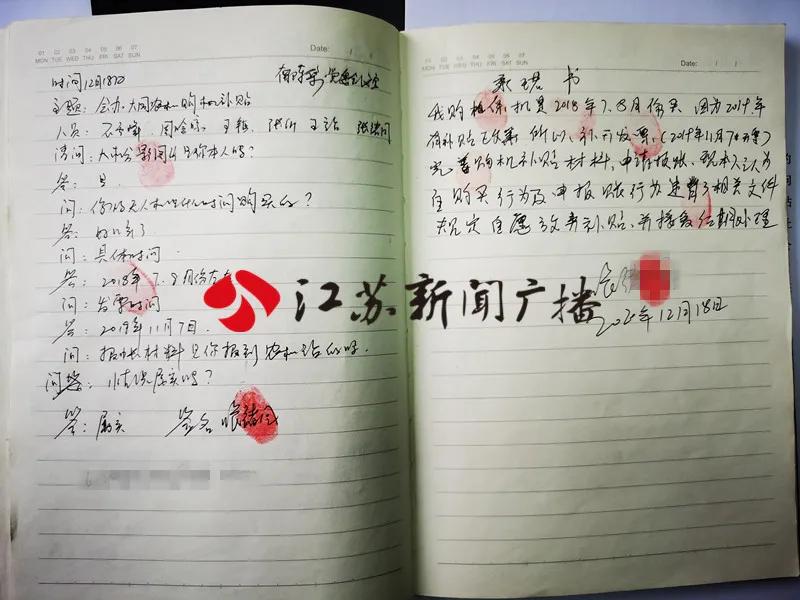 01 02 03 04 05 06 07
MON TUE WED THU FRI SAT SUN
Date: / /
时间12月18日
主题：大闸农机购机补贴
人员：
询问：是你本人吗？
答：是
问：你的无人机是什么时间购买的？
答：
问：具体时间
答：2018年7.8月份左右
问：发票时间
答：2019年11月7日.
问：报账材料是你报到农机站的吗.
问：情况属实吗？
答：属实 签名
01 02 03 04 05 06 07
MON TUE WED THU FRI SAT SUN
Date: / /
承诺书
我购植保机是2018年7.8月份买 因为2019年
有补贴政策 所以,补开发票,(2019年11月7日开票)
完善购机补贴材料,申请报账,现本人认为
自购买行为及申报账行为违背了相关文件
规定自愿放弃补贴,并接受后期处理
2020年12月18日
江苏新闻广播